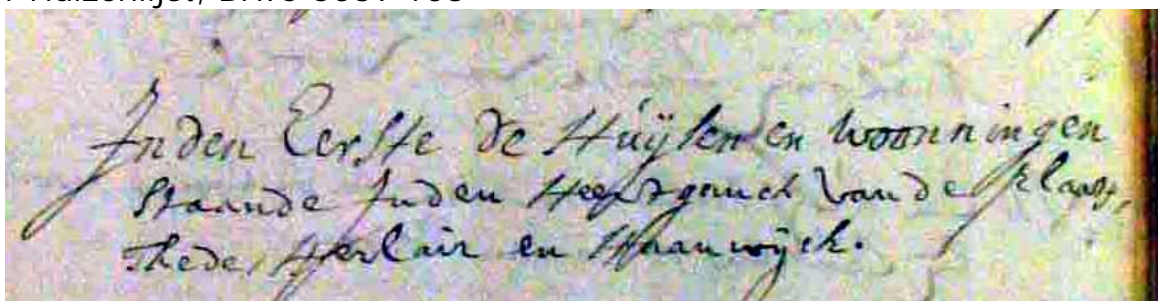 Inden Eerste de Huÿsen en woonningen
Staande Inden Heertganck Vande Plaats,
Thede, Herlair en Haanwijck.